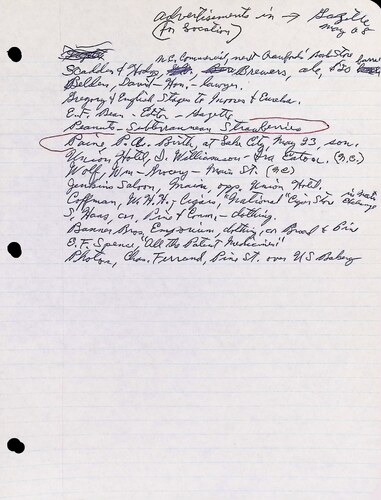 advertisements in → Gazette
(for location) May 68
N.C. Commercial, next Crawford's Book Store
Scadden & Hodge, Brewers, ale, $20 barrel
Belden, David - Hon. - lawyer.
Gregory & English Stages to Moores & Eureka.
E.F. Bean - Editor - Gazette
Peanuts - Subterranean Strawberries
Paine, P.A. Birth, at Lake City, May 23, son.
Union Hotel, D. Williamson - Eaton. (N.C.)
Wolf, Wm - Grocery - Main St. (N.C.)
Jenkins Saloon, Main, opp. Union Hotel.
Coffman, W.H.H. - Cigars, "National" Cigar Store in Nat'l Exchange
S. Haas, cor. Pine & Comm. - clothing.
Banner Bros, Emporium, clothing, cor Broad & Pine
E.F. Spence, "All the Patent Medicines"
Photos, Chas. Ferrand, Pine St. over US Bakery